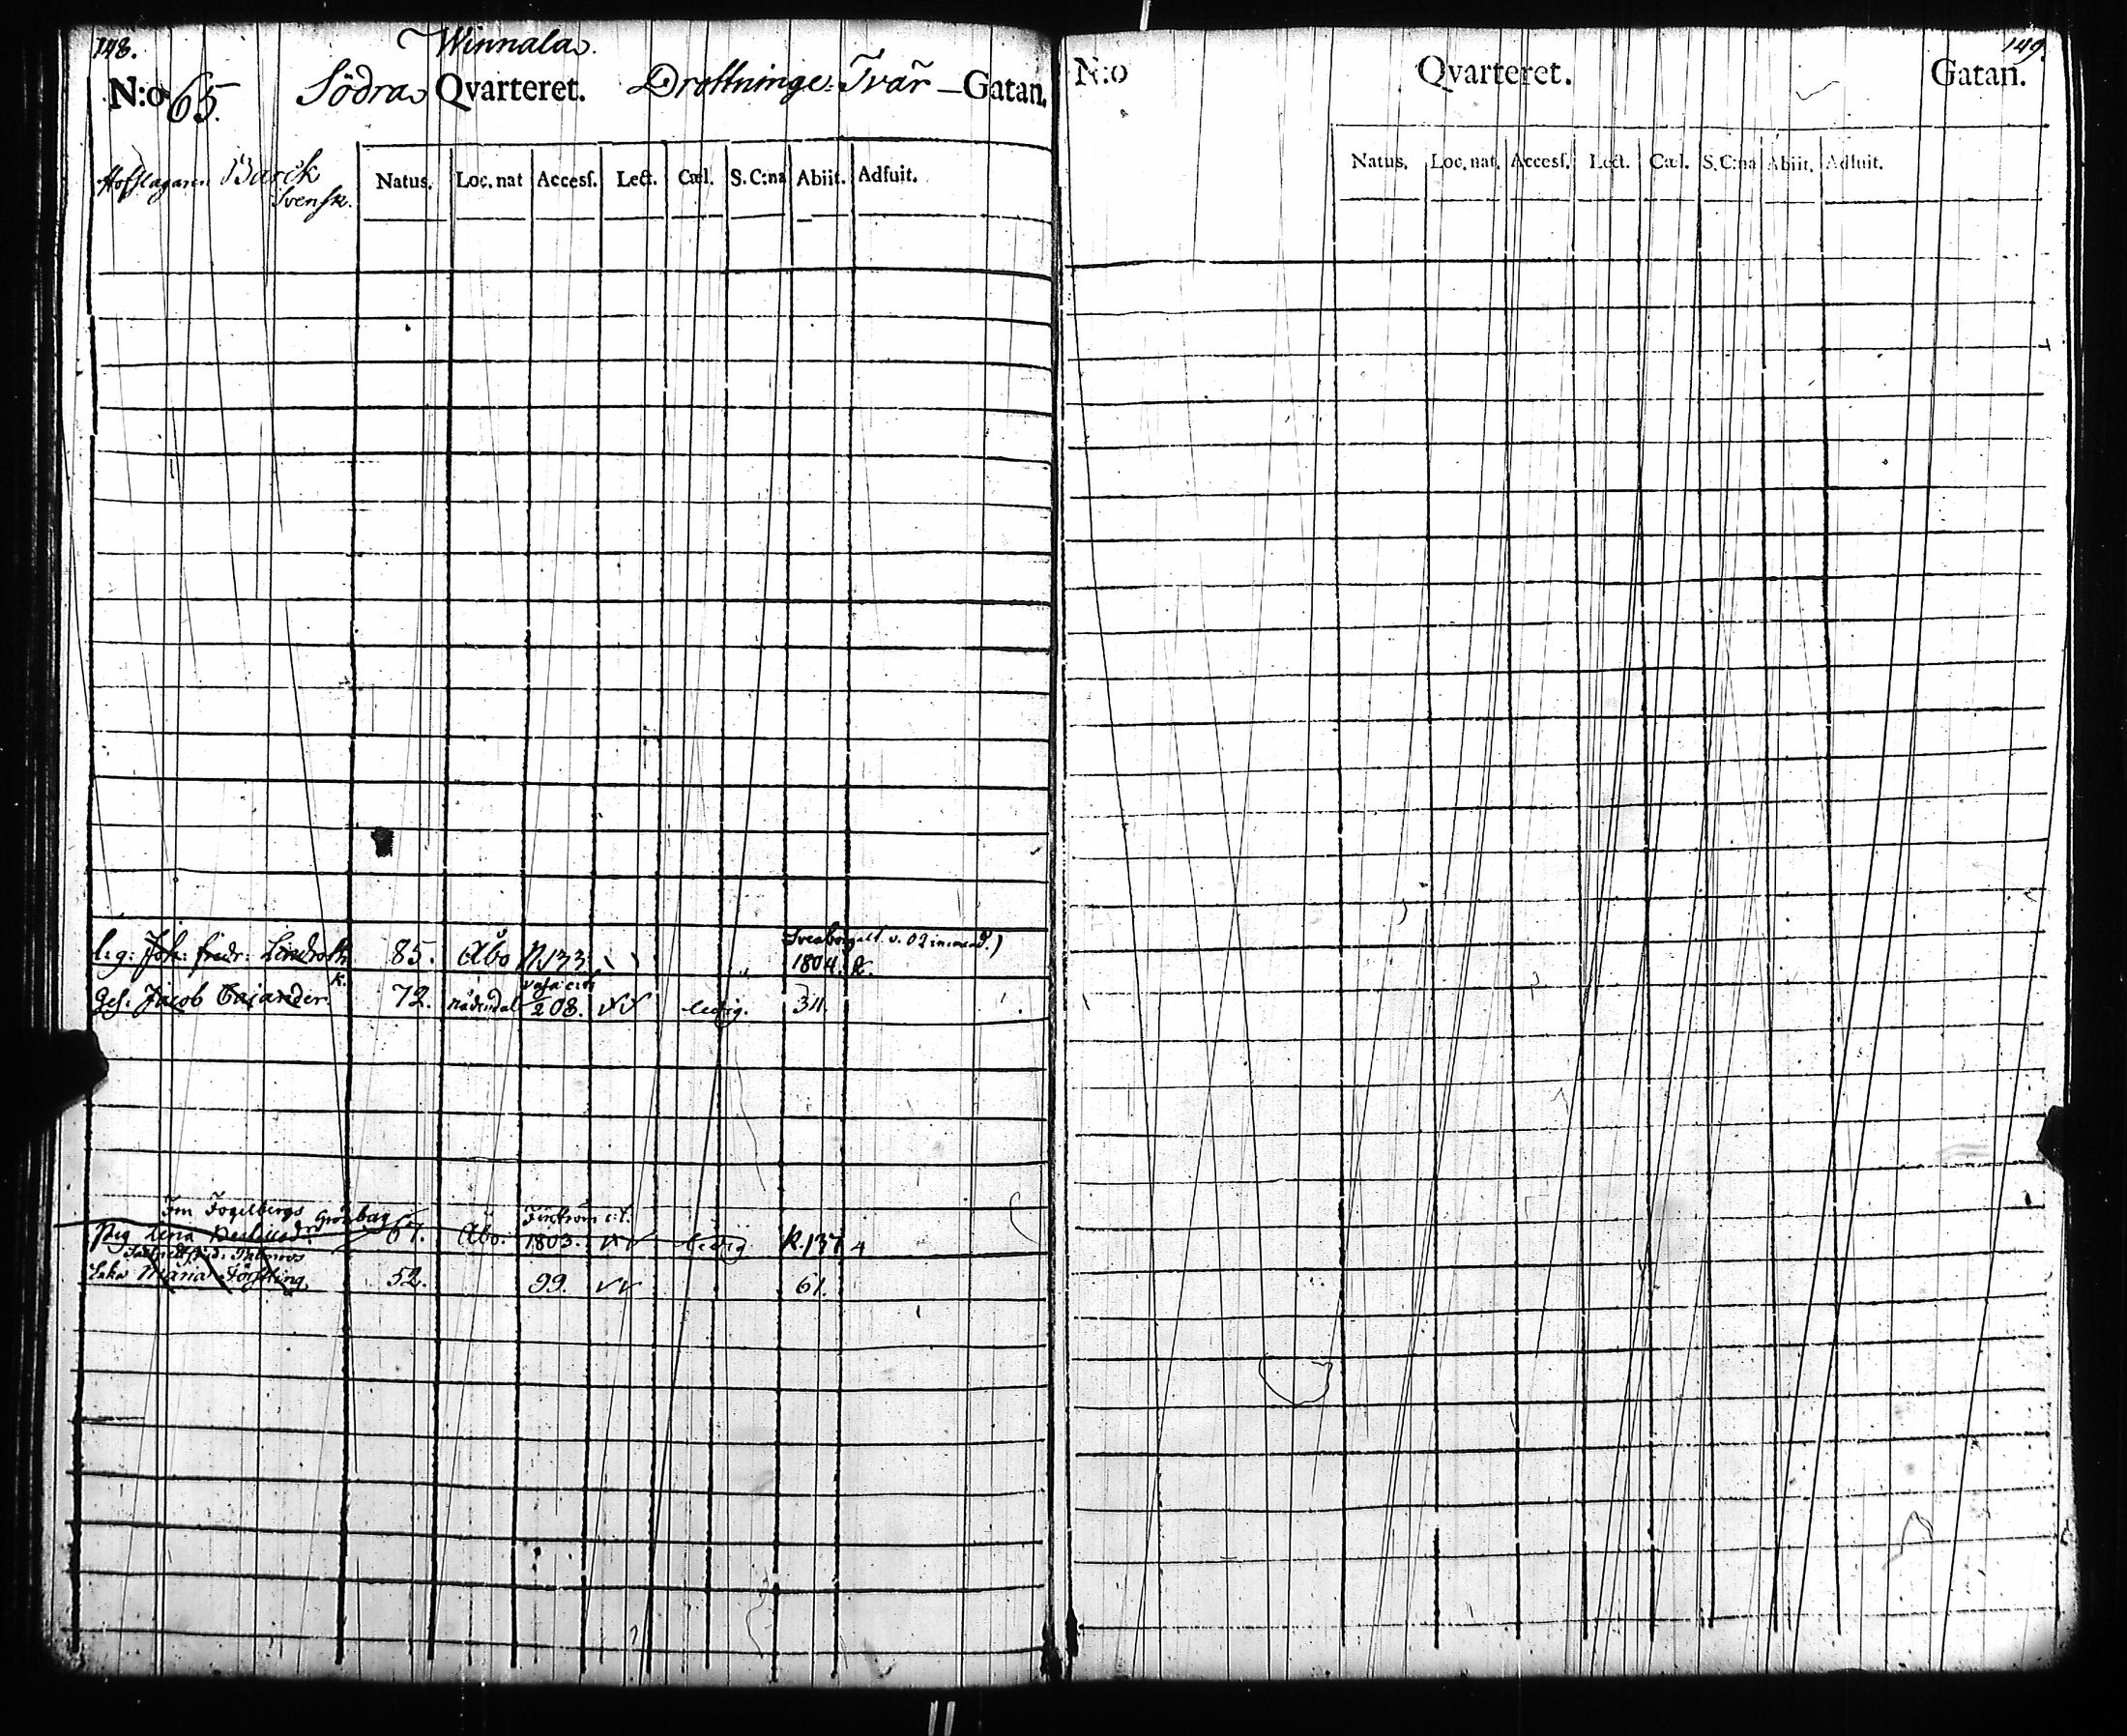 148.
Winnala
N:o 65. Södra Qvarteret. Drottninge Tvär Gatan.
Hofslagaren Barck
Svensk.
Natus. Loc. nat Accesſ. Lect. Cæl. S. C:na Abiit. Adfuit.
l: g: Joh: Fredr: Lindroth 85. Åbo N133 1804. k.
k.
Vasa
Ges. Jacob Cajander 72. nådendal 208. ledig. 311.
Fru Fogelbergs
Pig Lena 67. Åbo. 1803. ledig k. 137
Enka Maria 52. 99. 61.
149.
N:o Qvarteret. Gatan.
Natus. Loc. nat. Accesſ. Lect. Cæl. S. C:na Abiit. Adfuit.